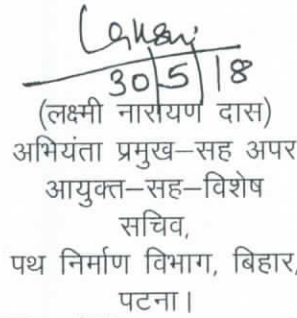 30/5/18
(लक्ष्मी नारायण दास)
अभियंता प्रमुख–सह अपर
आयुक्त–सह–विशेष
सचिव,
पथ निर्माण विभाग, बिहार,
पटना।